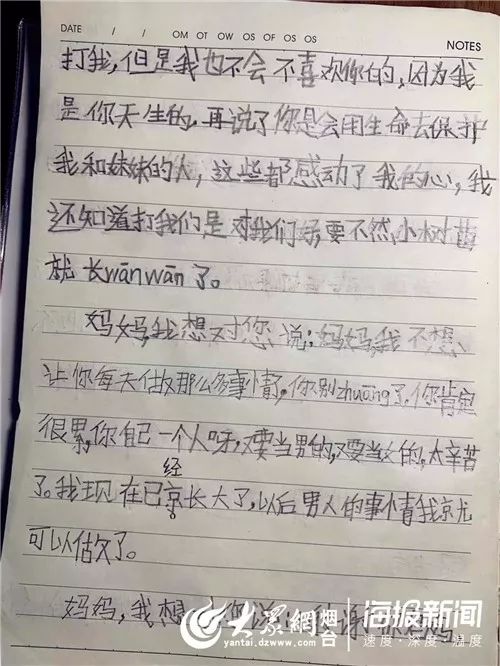 DATE / / OM OT OW OS OF OS OS
NOTES
打我,但是我也不会不喜欢你的,因为我
是你天生的,再说了你是会用生命去保护
我和妹妹的人,这些都感动了我的心,我
还知道打我们是对我们好,要不然,小树苗
就长wānwān了。
妈妈,我想对您说:妈妈,我不想
让你每天做那么多事情,你别zhuāng了,你肯定
很累,你自己一个人呀,又要当男的,又要当女的,太辛苦
了。我现在已经长大了,以后男人的事情我京尤
可以做了。
妈妈,我想
大众网 烟台
yantai.dzwww.com
海报新闻
速度·深度·温度